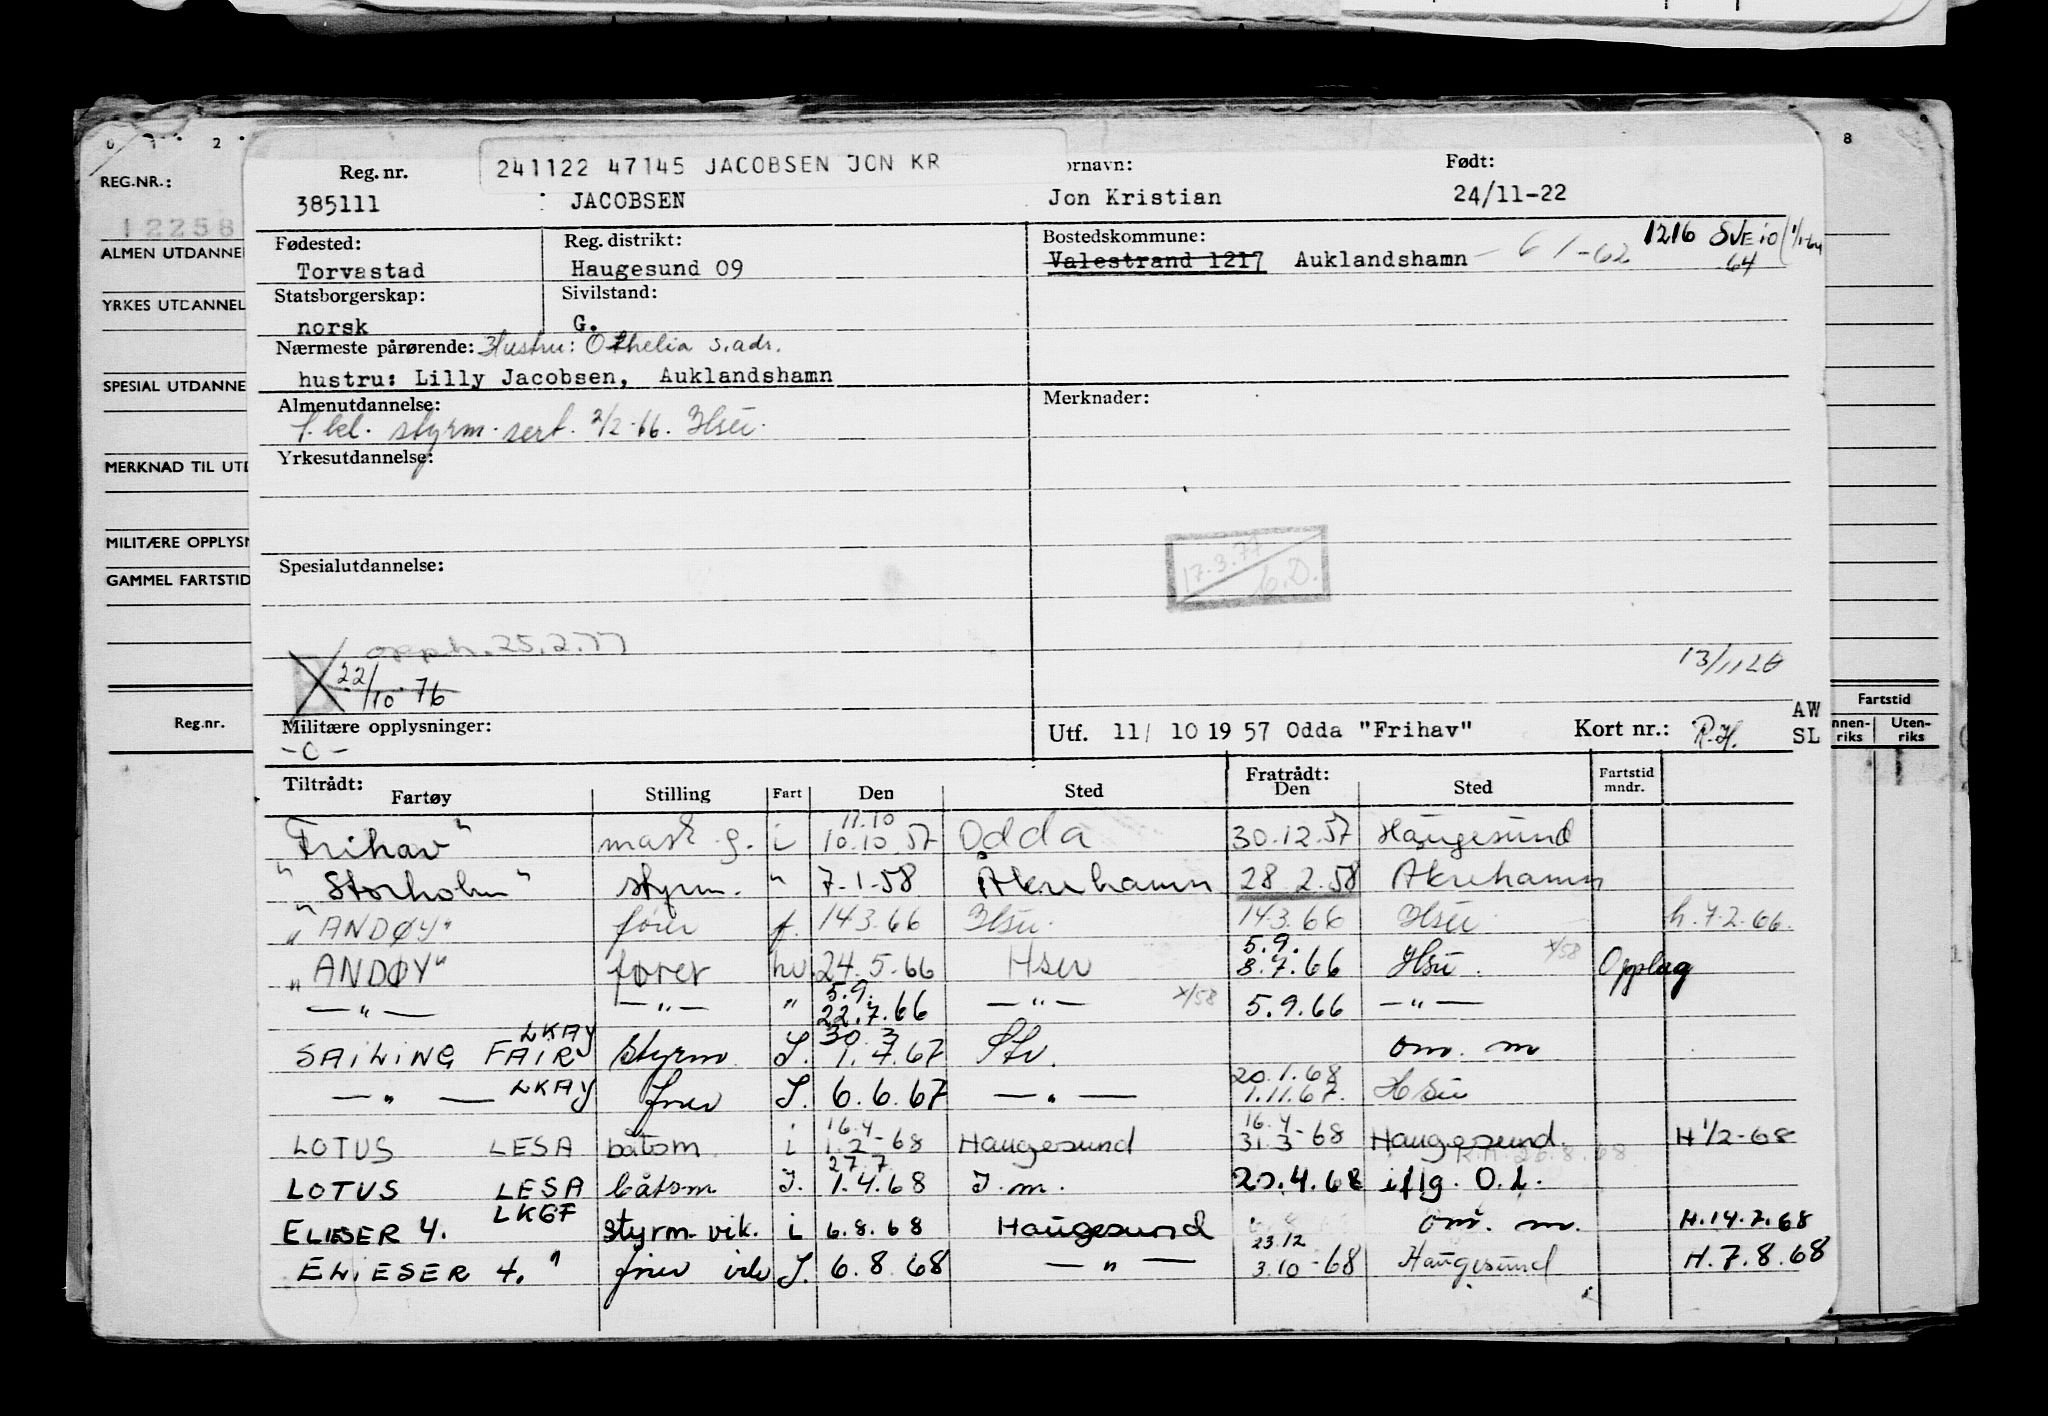 8
REG.NR.:
12258
ALMEN UTDANNEL
YRKES UTDANNEL
SPESIAL UTDANNE
MERKNAD TIL UTD
MILITÆRE OPPLYSN
GAMMEL FARTSTID
Reg.nr.
Reg. nr. 241122 47145 JACOBSEN JON KR ornavn: Født:
385111 : JACOBSEN Jon Kristian 24/11-22
Fødested: Reg. distrikt: Bostedskommune: 1216 SVEIO (1/1-64
Torvastad Haugesund 09 Valestrand 1217 Auklandshamn - 6/1-62 -64
Statsborgerskap: Sivilstand:
norsk G.
Nærmeste pårørende: Hustru: Othelia s.adr.
hustru: Lilly Jacobsen, Auklandshamn
Almenutdannelse: Merknader:
1. kl. styrm. sert. 2/2-66. Hsu.
Yrkesutdannelse:
17.3.77
Spesialutdannelse:
opph. 25.2.77
22/10.76
Militære opplysninger: Utf. 11/ 10 19 57 Odda "Frihav" Kort nr.: R.H. AW SL
-0-
Fartstid
nnen-riks Uten-riks
Tiltrådt: Fratrådt:
Fartøy Stilling Fart Den Sted Den Sted Fartstid mndr.
11.10
"Frihav" mask g. i 10.10.57 Odda 30.12.57 Haugesund
"Storholm" styrm. " 7-1-58 Åkrehamn 28 2.58 Åkrehamn
"ANDØY" fører f. 14.3.66 Hsu. 14.3.66 Hsu. h. 7.2.66.
5.9.
"ANDØY" fører hv 24.5.66 Hsu 8.7.66 Hsu. x/58 Opplag
5.9.
— " — — " — " 22.7.66 — " — x/58 5.9.66 — " —
LKAY 30 3
SAILING FAIR styrm. S. 1.4.67 Stv. om. m
20.1.68
— " — LKAY fører S. 6.6.67 — " — 1.11.67. Hsu
16.4 16.4
LOTUS LESA båtsm. i 1.2-68 Haugesund 31.3-68 Haugesund. H 1/2-68
27.7
LOTUS LESA båtsm I. 1.4.68 I. m. 20.4.68 iflg. O.L.
LKGF
ELIESER 4. styrm. vik. i 6.8.68 Haugesund om. m. H.14.7.68
23.12
ELIESER 4. " fører vik S. 6.8.68 — " — 3.10-68 Haugesund H.7.8.68